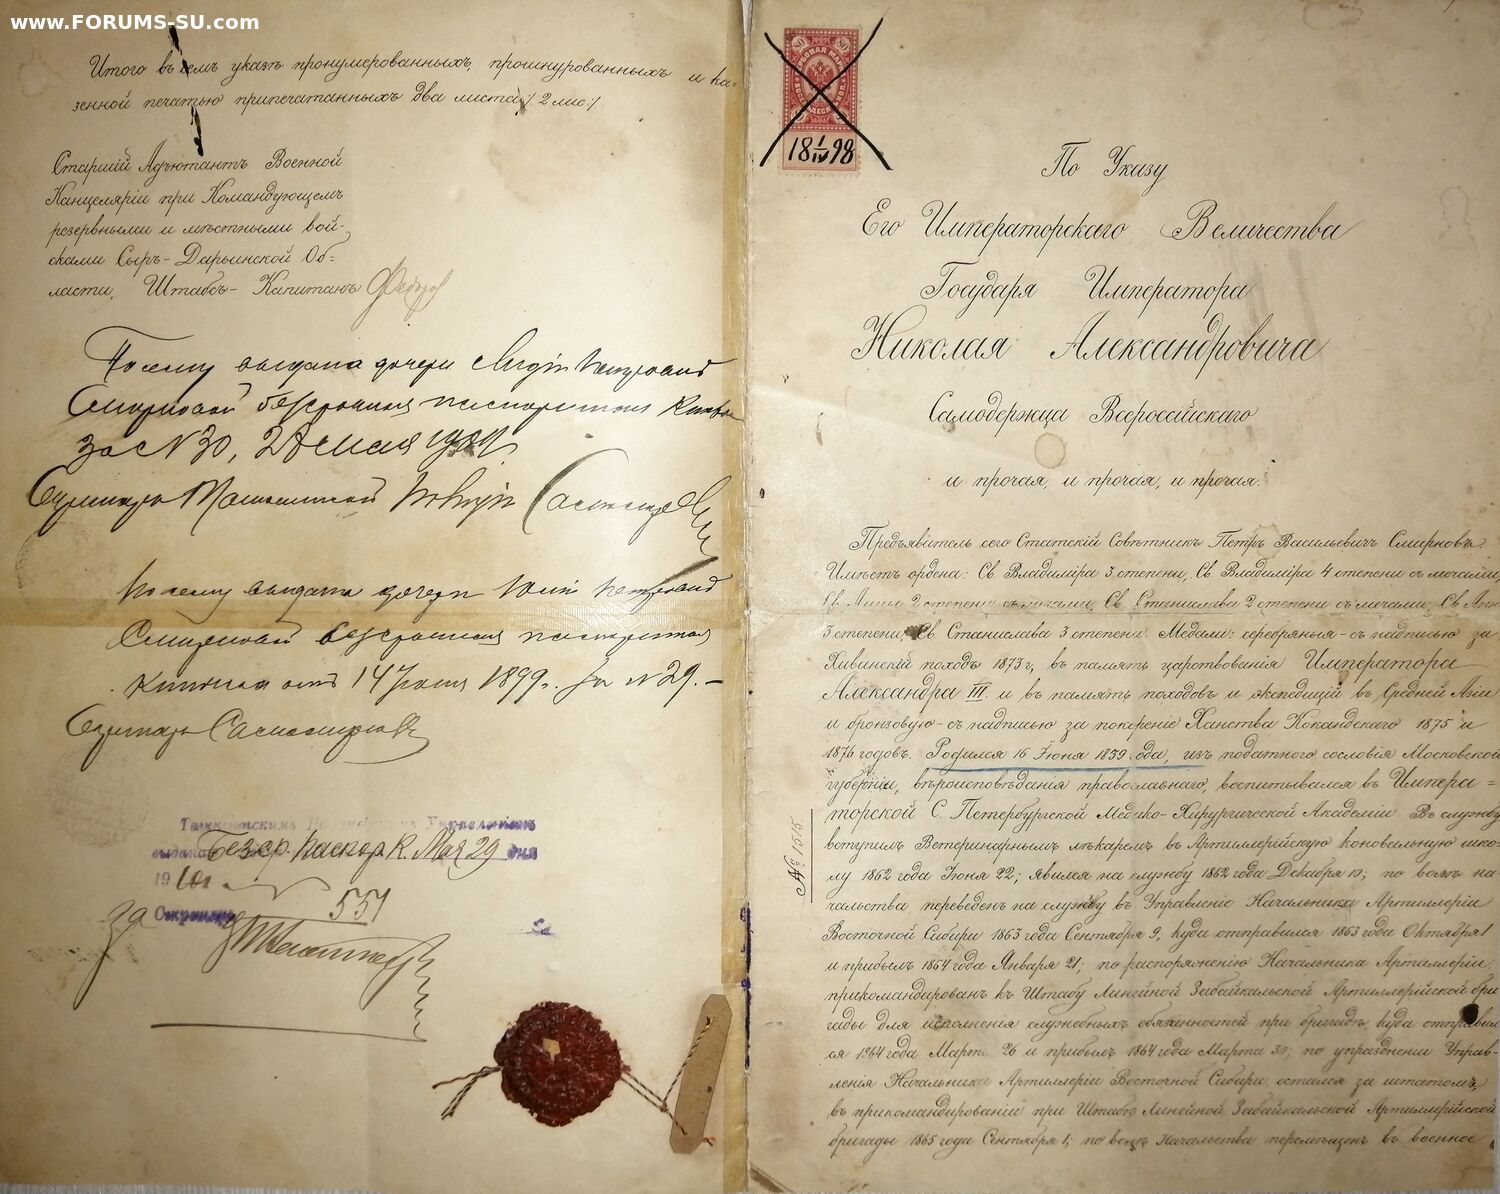 www.FORUMS-SU.com
Итого въ семъ указѣ пронумерованныхъ, прошнурованныхъ и ка=
зенной печатью припечатанныхъ два листа /2 лис./
Старшій Адъютантъ Военной
Канцеляріи при Командующемъ
резервными и мѣстными вой-
сками Сыръ-Дарьинской Об=
ласти, Штабсъ-Капитанъ Федоров
По сему выдана дочери Лидіи Петровой
Смирновой безсрочная паспортная книжка
за № 30, 28 мая
Секретарь Ташкентской
По сему выдана дочери Юліи Петровой
Смирновой безсрочная паспортная
книжка отъ 14 1899 г. за № 29.-
Секретарь
Ташкентскимъ Управленіемъ
выдана Безср. Паспор. К. Мая 29 дня
19
за Секретаря 551
80 80
18 1/IV 98
По Указу
Его Императорскаго Величества
Государя Императора
Николая Александровича
Самодержца Всероссійскаго
и прочая, и прочая, и прочая.
Предъявитель сего Статскій Совѣтникъ Петръ Васильевичъ Смирновъ.
Имѣетъ ордена: Св. Владиміра 3 степени, Св. Владиміра 4 степени съ мечами,
Св. Анны 2 степени съ мечами, Св. Станислава 2 степени съ мечами, Св. Анны
3 степени, Св. Станислава 3 степени. Медали: серебряныя - съ надписью за
Хивинскій походъ 1873 г., въ память царствованія Императора
Александра III. и въ память походовъ и экспедицій въ Средней Азіи
и бронзовую - съ надписью за покореніе Ханства Кокандскаго 1875 и
1876 годовъ. Родился 16 Іюня 1839 года, изъ податного сословія Московской
губерніи, вѣроисповѣданія православнаго, воспитывался въ Импера=
торской С. Петербургской Медико-Хирургической Академіи. Въ службу
вступилъ Ветеринарнымъ лѣкаремъ въ Артиллерійскую коновальную шко-
лу 1862 года Іюня 22; явился на службу 1862 года Декабря 10; по волѣ на-
чальства переведенъ на службу въ Управленіе Начальника Артиллеріи
Восточной Сибири 1863 года Сентября 9, куда отправился 1863 года Октября 1
и прибылъ 1864 года Января 21; по распоряженію Начальника Артиллеріи,
прикомандированъ къ Штабу Линейной Забайкальской Артиллерійской бри
гады для исполненія служебныхъ обязанностей при бригадѣ, куда отправил
ся 1864 года Марта 26 и прибылъ 1864 года Марта 30; по упраздненіи Управ-
ленія Начальника Артиллеріи Восточной Сибири остался за штатомъ,
въ прикомандированіи при Штабѣ Линейной Забайкальской Артиллерійской
бригады 1865 года Сентября 1; по волѣ Начальства перемѣщенъ въ военное
№ 1515.